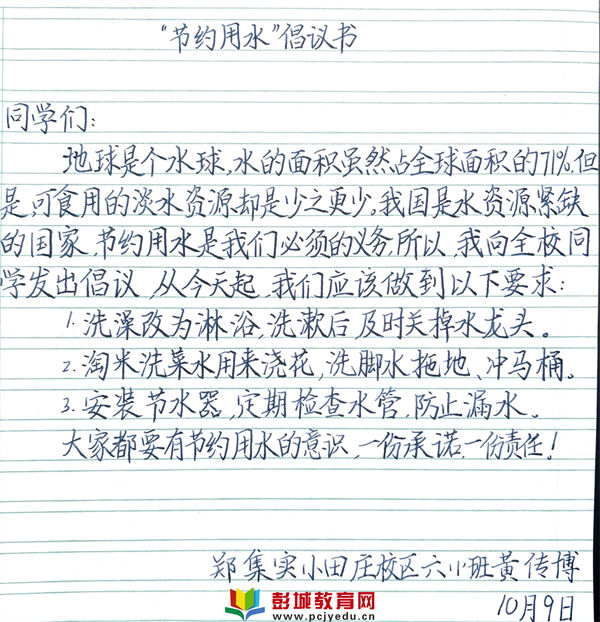 “节约用水”倡议书
同学们:
地球是个水球,水的面积虽然占全球面积的71%,但
是,可食用的淡水资源却是少之更少,我国是水资源紧缺
的国家,节约用水是我们必须的义务,所以,我向全校同
学发出倡议,从今天起,我们应该做到以下要求:
1.洗澡改为淋浴,洗漱后,及时关掉水龙头。
2.淘米洗菜水用来浇花,洗脚水拖地、冲马桶。
3.安装节水器,定期检查水管,防止漏水。
大家都要有节约用水的意识,一份承诺,一份责任!
郑集实小田庄校区六(1)班黄传博
10月9日
彭城教育网
www.pcjyedu.cn